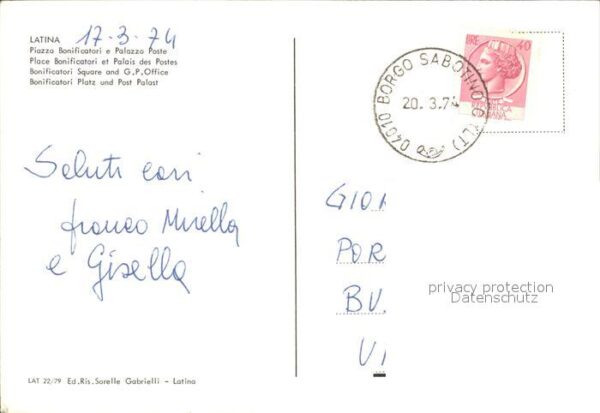 LATINA 17-3-74
Piazza Bonificatori e Palazzo Poste
Place Bonificatori et Palais des Postes
Bonificatori Square and G.P.Office
Bonificatori Platz und Post Palast
LIRE 40
REPUBBLICA
ITALIANA
04010 BORGO SABOTINO (LT)
20.3.74
Saluti cari
franco Mirella
e Gisella
GIOI
POR
BU.
VI
privacy protection
Datenschutz
LAT 22/79 Ed.Ris.Sorelle Gabrielli - Latina